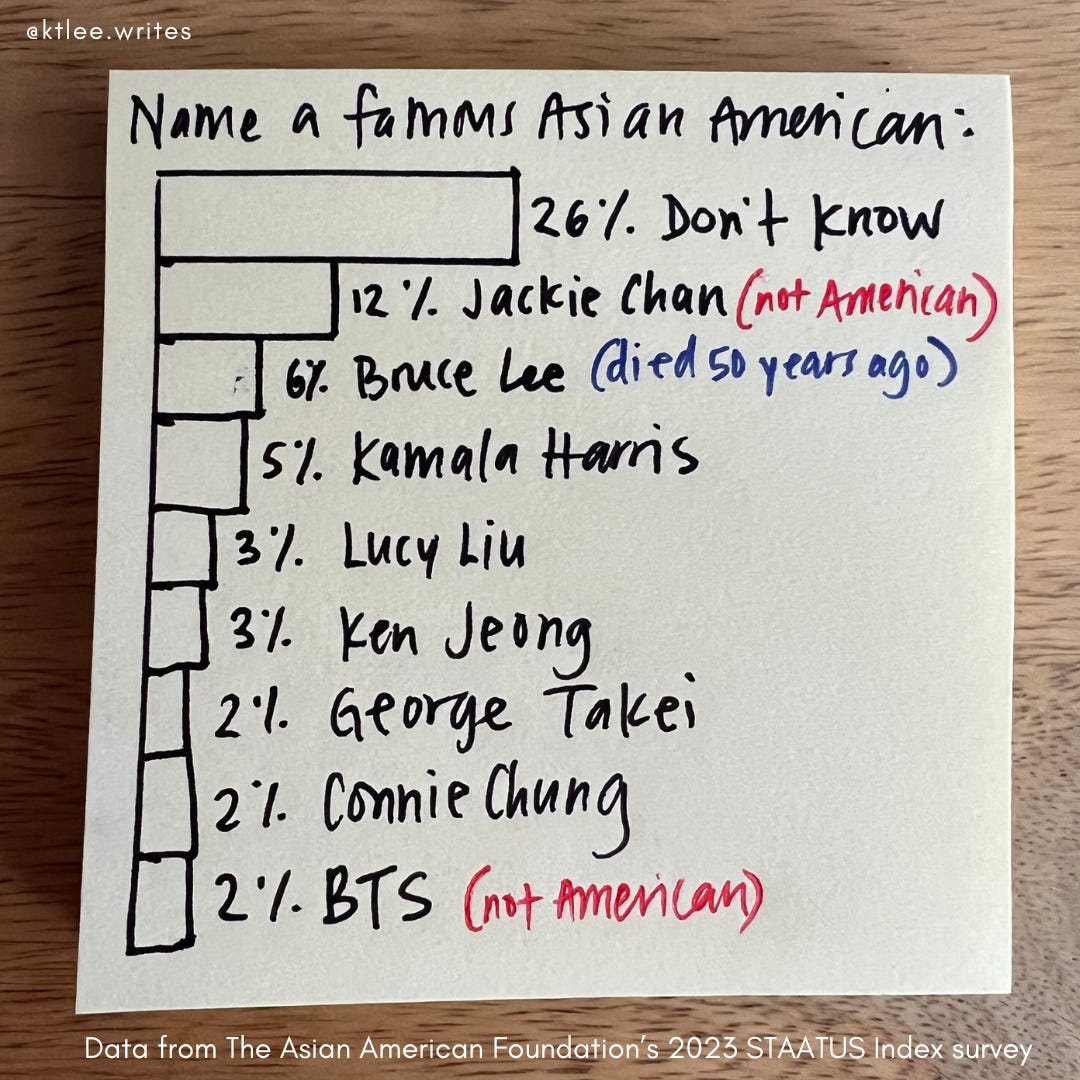 @ktlee.writes
Name a famous Asian American:
26% Don't know
12% Jackie Chan (not American)
6% Bruce Lee (died 50 years ago)
5% Kamala Harris
3% Lucy Liu
3% Ken Jeong
2% George Takei
2% Connie Chung
2% BTS (not American)
Data from The Asian American Foundation's 2023 STAATUS Index survey